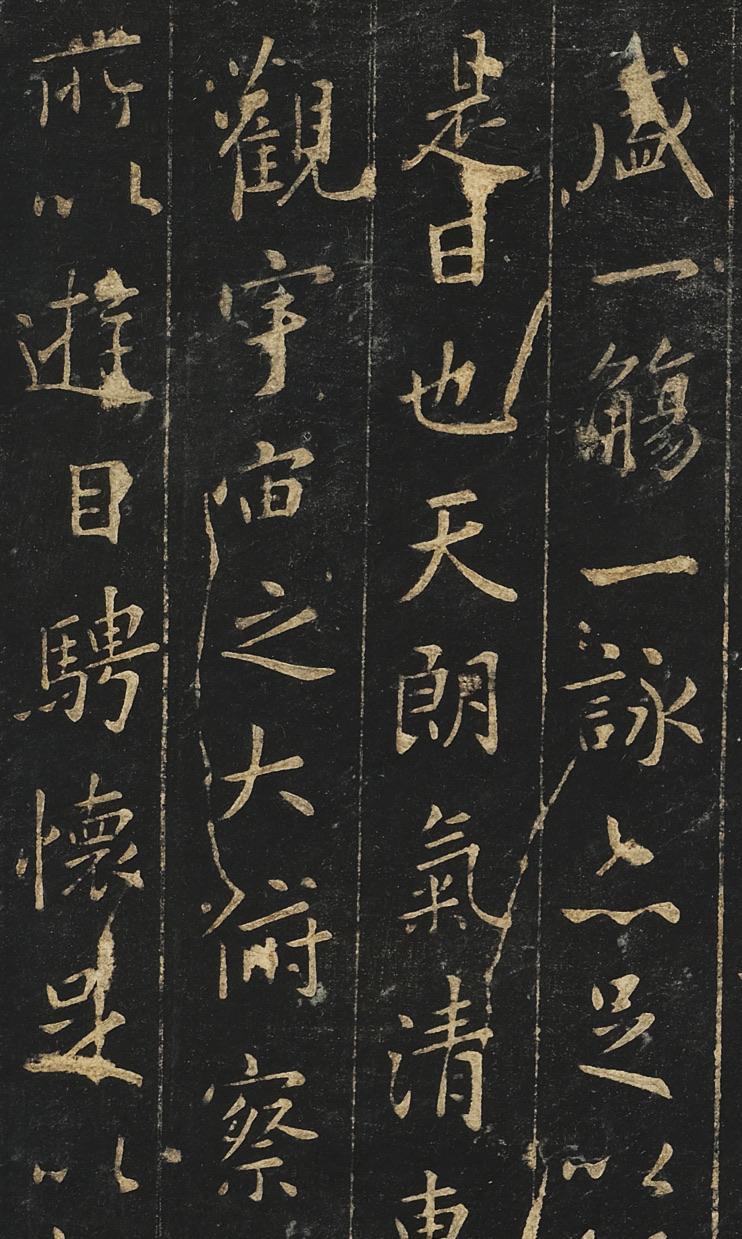 盛一觴一詠亦足以
是日也天朗氣清恵
觀宇宙之大俯察
所以遊目騁懷足以